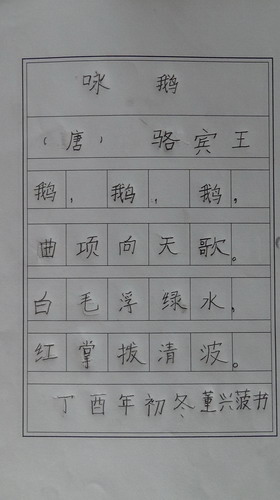 咏鹅
（唐）骆宾王
鹅，鹅，鹅，
曲项向天歌。
白毛浮绿水，
红掌拨清波。
丁酉年初冬董兴菠书